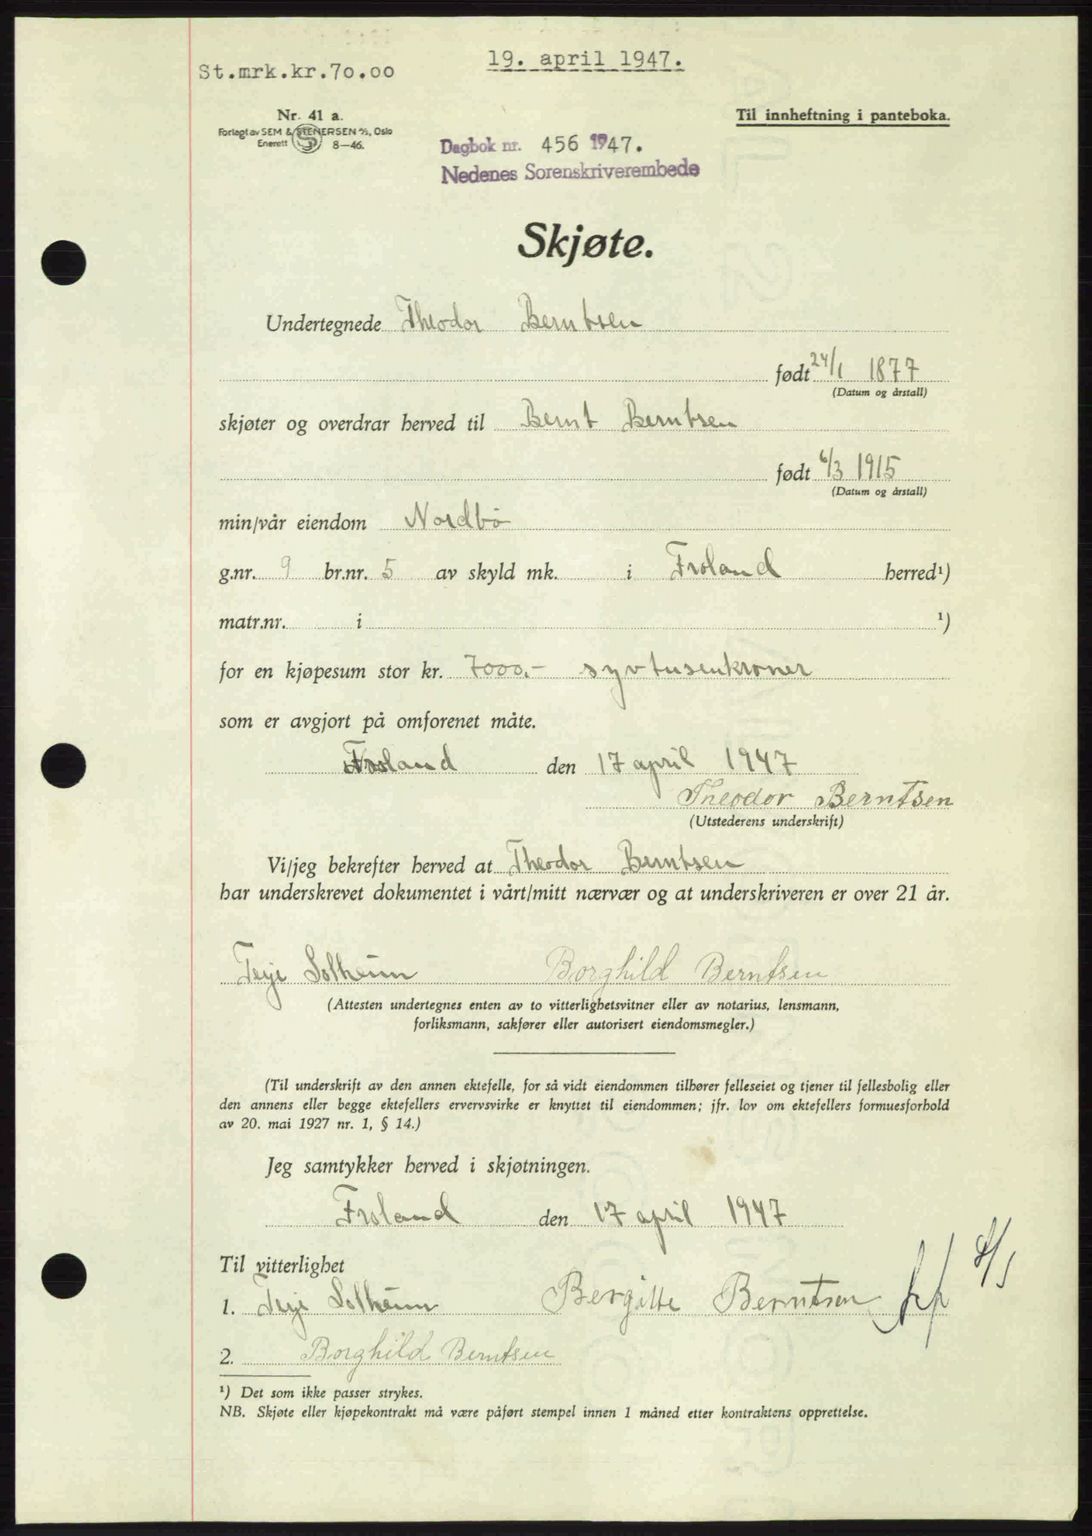 19. april 1947.
St.mrk.kr.70.00
Nr. 41 a.
Forlagt av SEM & STENERSEN A/S, Oslo
Enerett 8—46.
Til innheftning i panteboka.
Dagbok nr. 456 1947.
Nedenes Sorenskriverembede
Skjøte.
Undertegnede Theodor Berntsen
født 24/1 1877
(Datum og årstall)
skjøter og overdrar herved til Bernt Berntsen
født 6/3 1915
(Datum og årstall)
min/vår eiendom Nordbö
g.nr. 9 br.nr. 5 av skyld mk. i Froland herred¹)
matr.nr. i ¹)
for en kjøpesum stor kr. 7000,- syvtusenkroner
som er avgjort på omforenet måte.
Froland den 17 april 1947
Theodor Berntsen
(Utstederens underskrift)
Vi/jeg bekrefter herved at Theodor Berntsen
har underskrevet dokumentet i vårt/mitt nærvær og at underskriveren er over 21 år.
Terje Solheim Borghild Berntsen
(Attesten undertegnes enten av to vitterlighetsvitner eller av notarius, lensmann,
forliksmann, sakfører eller autorisert eiendomsmegler.)
(Til underskrift av den annen ektefelle, for så vidt eiendommen tilhører felleseiet og tjener til fellesbolig eller
den annens eller begge ektefellers ervervsvirke er knyttet til eiendommen; jfr. lov om ektefellers formuesforhold
av 20. mai 1927 nr. 1, § 14.)
Jeg samtykker herved i skjøtningen.
Froland den 17 april 1947
Til vitterlighet
1. Terje Solheim Bergitte Berntsen
2. Borghild Berntsen
¹) Det som ikke passer strykes.
NB. Skjøte eller kjøpekontrakt må være påført stempel innen 1 måned etter kontraktens opprettelse.